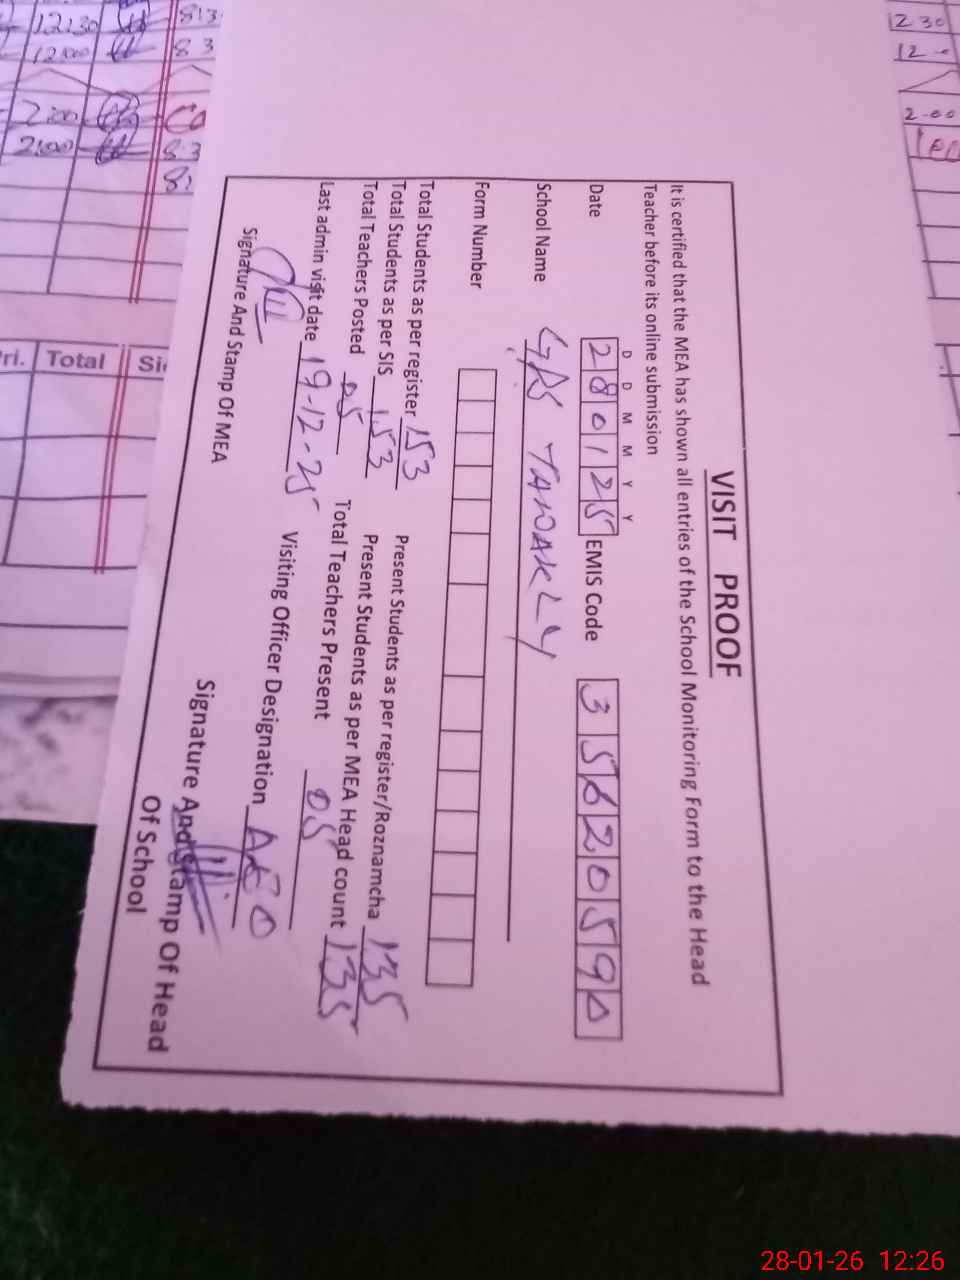 VISIT PROOF
It is certified that the MEA has shown all entries of the School Monitoring Form to the Head
Teacher before its online submission
D D M M Y Y
Date 280125 EMIS Code 35620590
School Name GPS TAWAKLY
Form Number
Total Students as per register 153 Present Students as per register/Roznamcha 135
Total Students as per SIS 153 Present Students as per MEA Head count 135
Total Teachers Posted 05 Total Teachers Present 05
Last admin visit date 19-12-25 Visiting Officer Designation AEO
Signature And Stamp Of MEA
Signature And Stamp Of Head
Of School
12:30
12:00
2:00
2:00
83
83
83
2 30
12
2-00
ri. Total Si
28-01-26 12:26